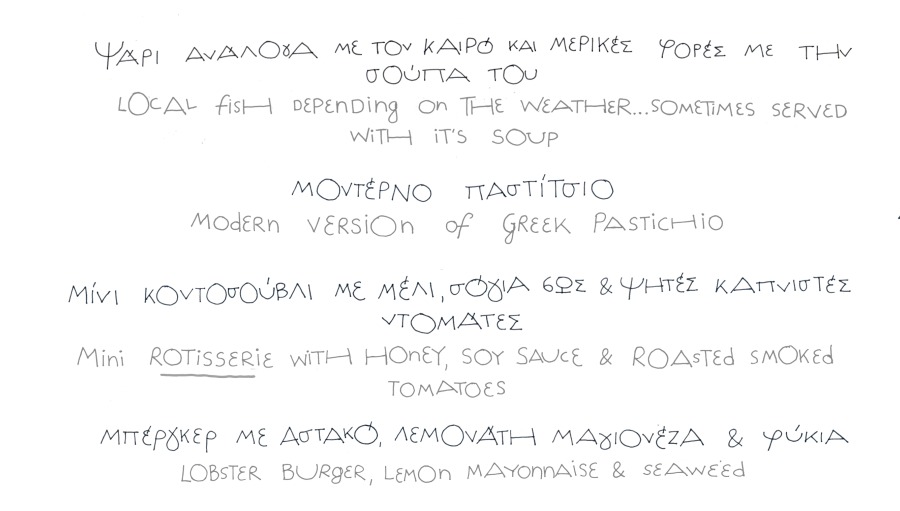 ΨΆΡΙ ΑΝΆΛΟΓΑ ΜΕ ΤΟΝ ΚΑΙΡΌ ΚΑΙ ΜΕΡΙΚΈΣ ΦΟΡΈΣ ΜΕ ΤΗΝ
ΣΟΎΠΑ ΤΟΥ
LOCAL fiSH DEPENDing On THE WEATHER...SOMETIMES SERVED
WITH iT'S SOUP
ΜΟΝΤΈΡΝΟ ΠΑΣΤΊΤΣΙΟ
MOdERn VERSiOn of GREEK PASTiCHiO
ΜΊΝΙ ΚΟΝΤΟΣΟΎΒΛΙ ΜΕ ΜΈΛΙ, ΣΌΓΙΑ ΣΩΣ & ΨΗΤΈΣ ΚΑΠΝΙΣΤΈΣ
ΝΤΟΜΆΤΕΣ
Mini ROTiSSERiE WiTH HOnEY, SOY SAUCE & ROASTEd SMOKEd
TOMATOES
ΜΠΈΡΓΚΕΡ ΜΕ ΑΣΤΑΚΌ, ΛΕΜΟΝΆΤΗ ΜΑΓΙΟΝΈΖΑ & ΦΎΚΙΑ
LOBSTER BURgER, LEMOn MAYOnnAiSE & SEAWEEd